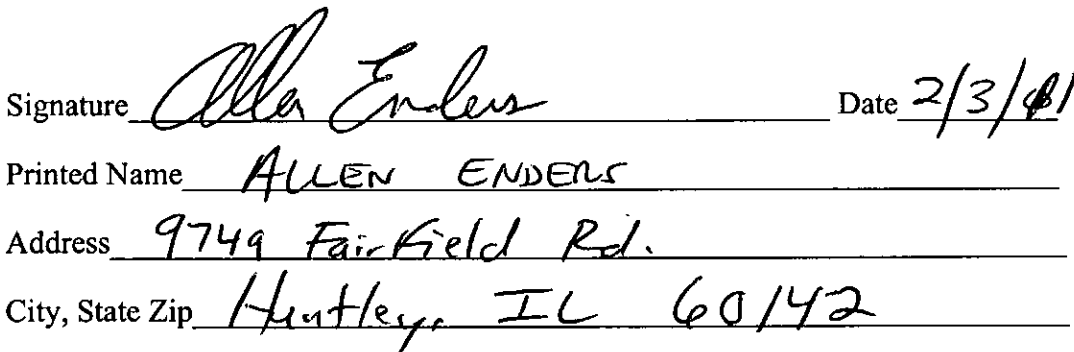 Signature Allen Enders Date 2/3/01
Printed Name ALLEN ENDERS
Address 9749 Fairfield Rd.
City, State Zip Huntley, IL 60142